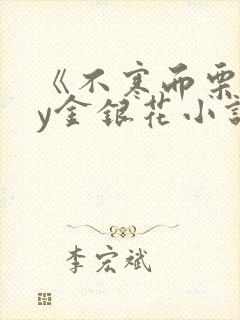 《不寒而栗
y金银花小说
李宏斌